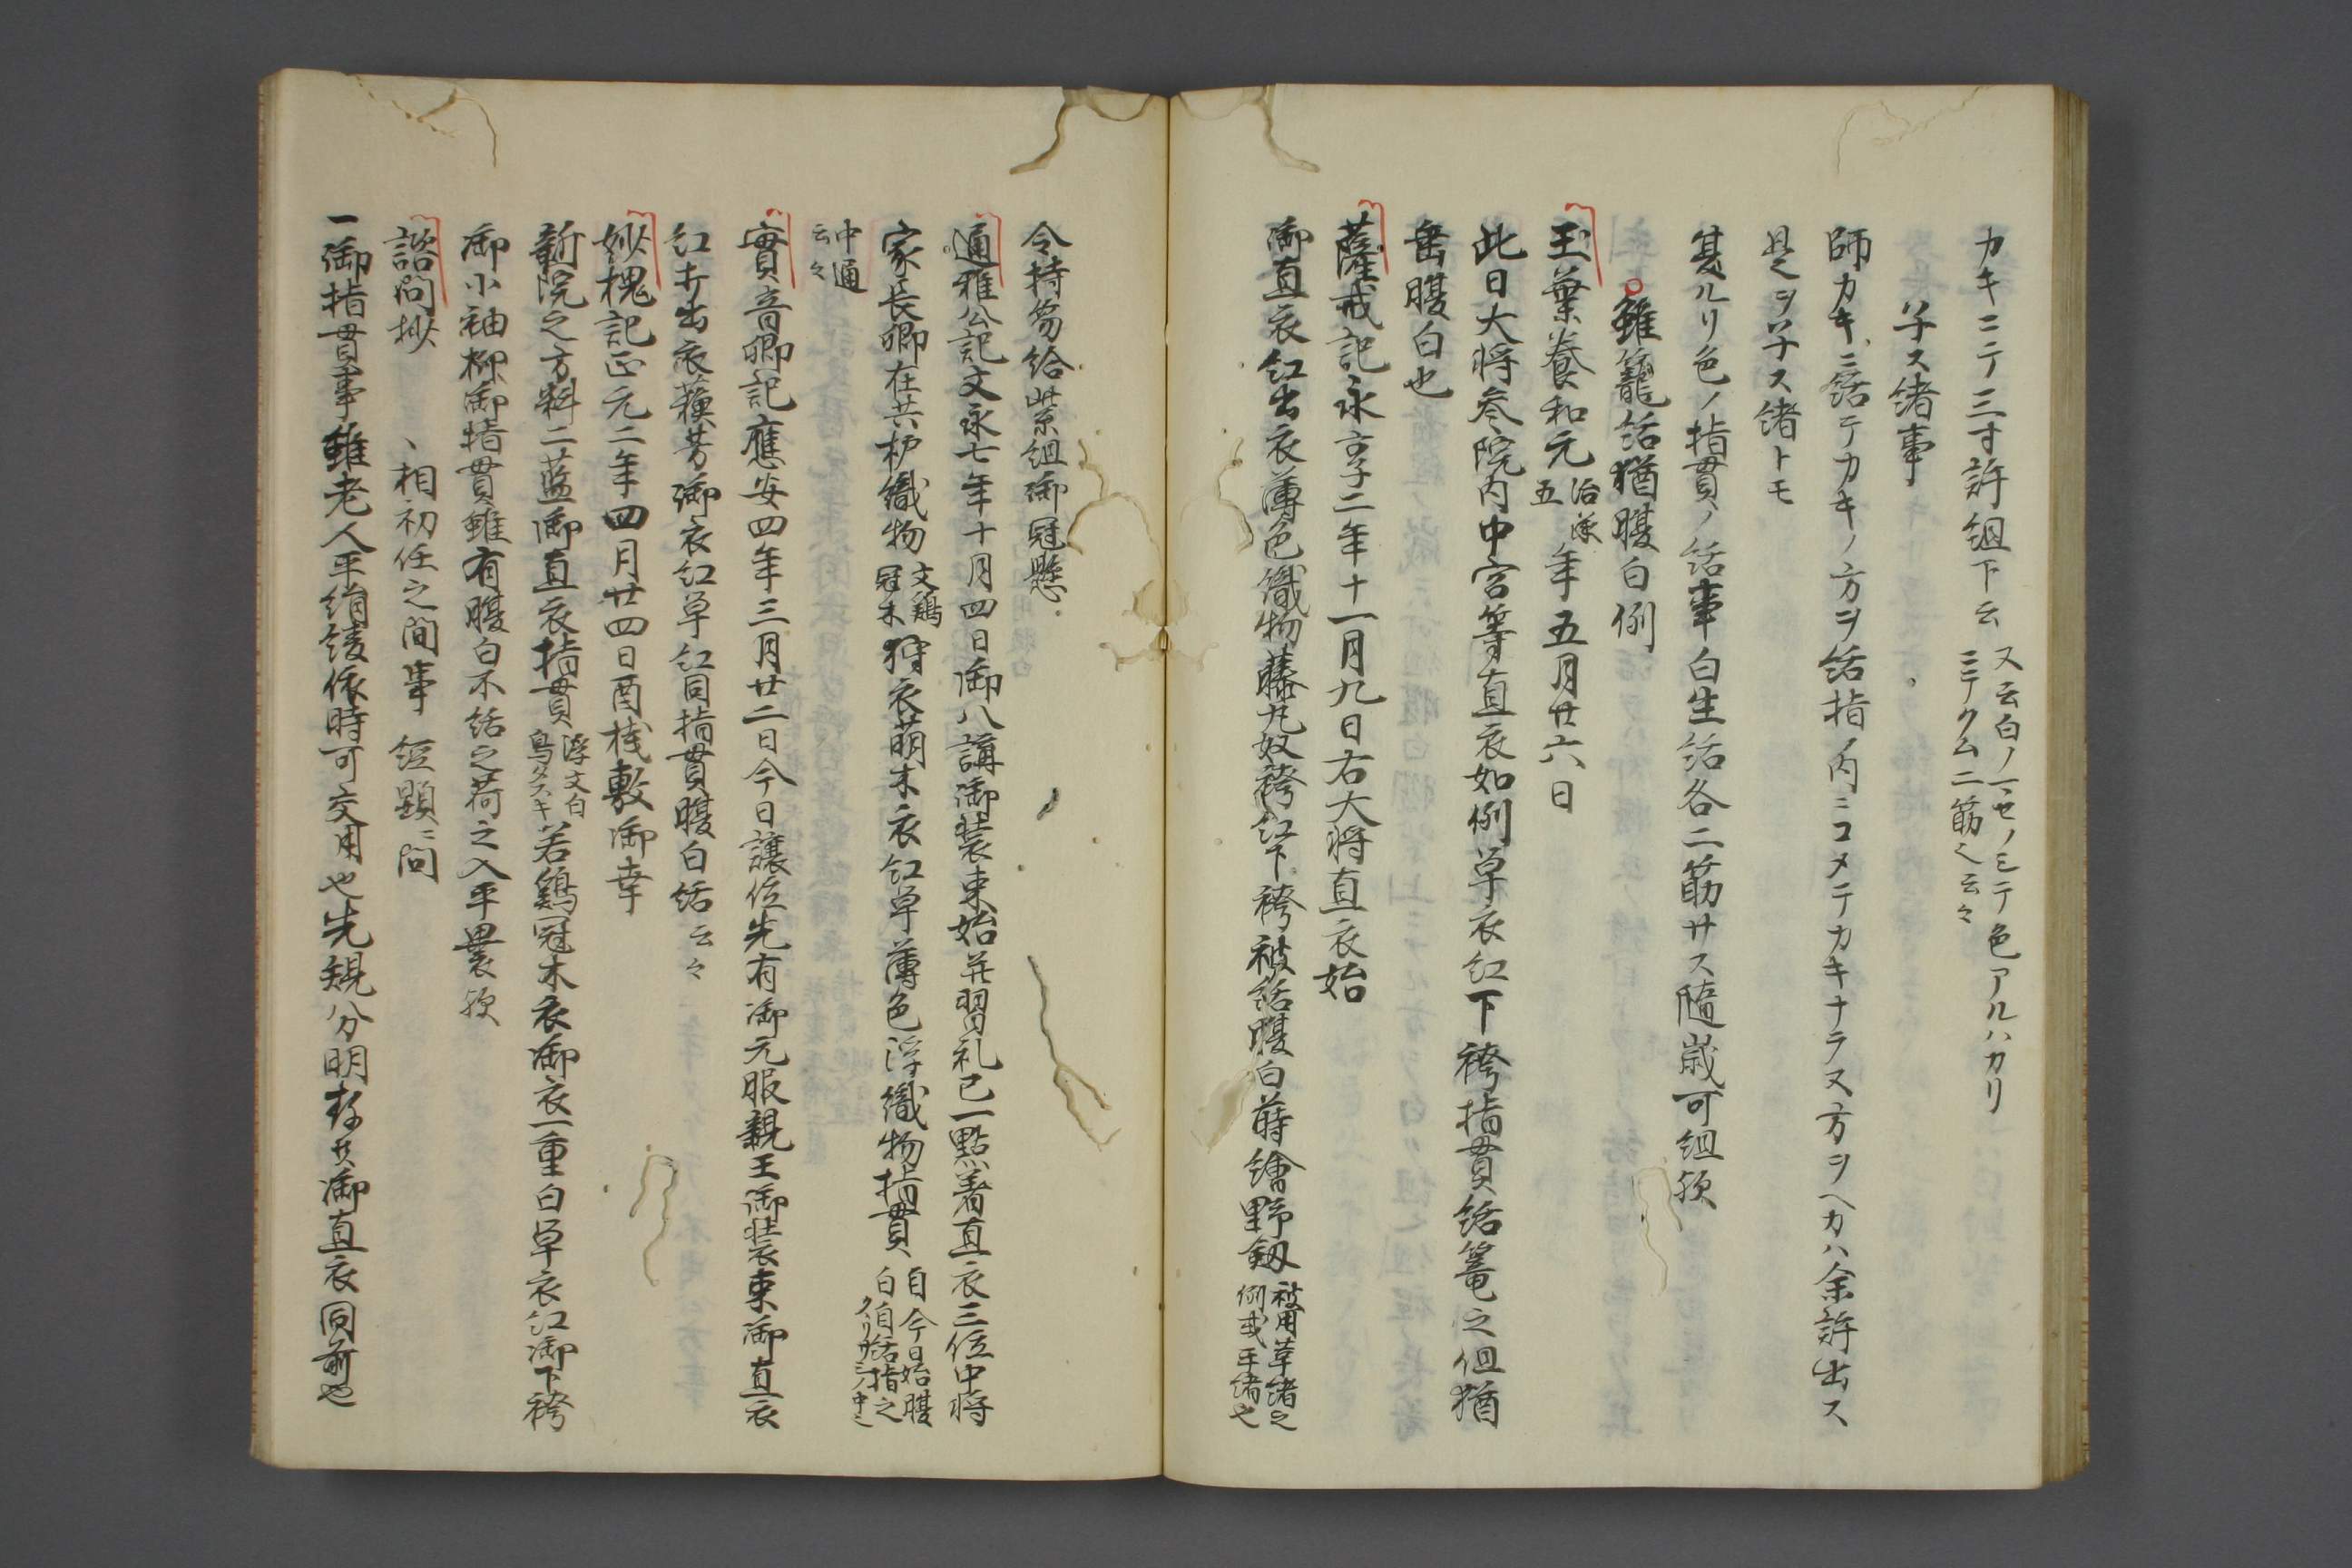 カキニテ三寸許組下云 又云白ノ一セノミテ色アルハカリ
ニテクム二筋ヘ云々
子ス緒事
師カキニ括テカキノ方ヲ括指ノ内ニコメテカキナラヌ方ヲヘカハ余許出ス
是ヲ子ス緒トモ
其ルリ色ノ指貫ノ括事白生括各二筋サス随歳可組須
雖籠括猶腹白例
玉葉養和元 治承五 年五月廿六日
此日大将参院内中宮等直衣如例単衣紅下袴指貫括篭之但猶
垂腹白也
薩戒記永享二年十一月九日右大将直衣始
御直衣紅出衣薄色織物藤丸奴袴紅下袴被括腹白蒔繪野剱 被用草緒之
例或平緒也
令持笏給紫組御冠懸
通雅公記文永七年十月四日御八講御装束始并習礼已一點着直衣三位中将
家長卿在共枦織物 文鶏
冠木 狩衣萌木衣紅単薄色浮織物指貫 自今日始腹
白自括指之
クリカミノ中ニ
中通
云々
實音卿記應安四年三月廿二日今日譲位先有御元服親王御装束御直衣
紅打出衣蘇芳御衣紅単紅同指貫腹白括云々
妙槐記正元二年四月廿四日酉桟敷御幸
新院之方料二藍御直衣指貫 浮文白
鳥タスキ 若鶏冠木衣御衣一重白単衣紅御下袴
御小袖柳御指貫雖有腹白不括之荷之入平裹須
諮問抄　相初任之間事 経顕ニ問
一御指貫事雖老人平絹綾依時可交用也先規分明存其御直衣同前也